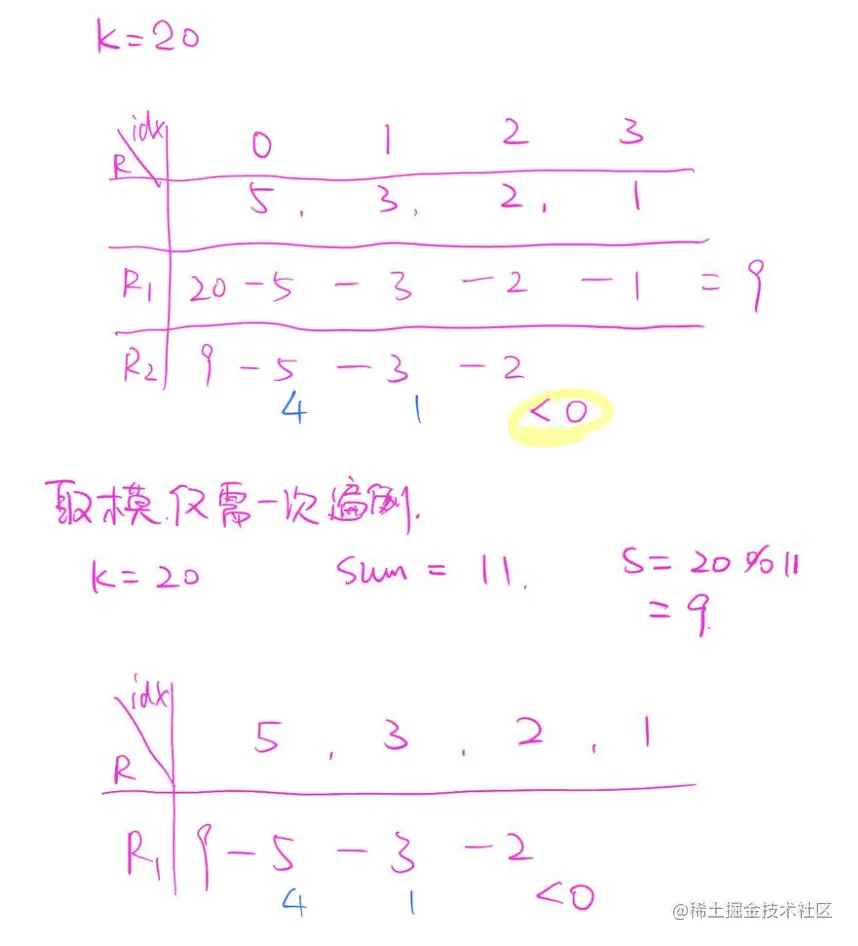 k=20
idx 0 1 2 3
R
5, 3, 2, 1
R1 20-5 - 3 - 2 - 1 = 9
R2 9-5 - 3 - 2
4 1 <0
取模,仅需一次遍历.
k=20 sum = 11. S=20%11
=9.
idx
5, 3, 2, 1
R
R1 9-5 - 3 - 2
4 1 <0
@稀土掘金技术社区